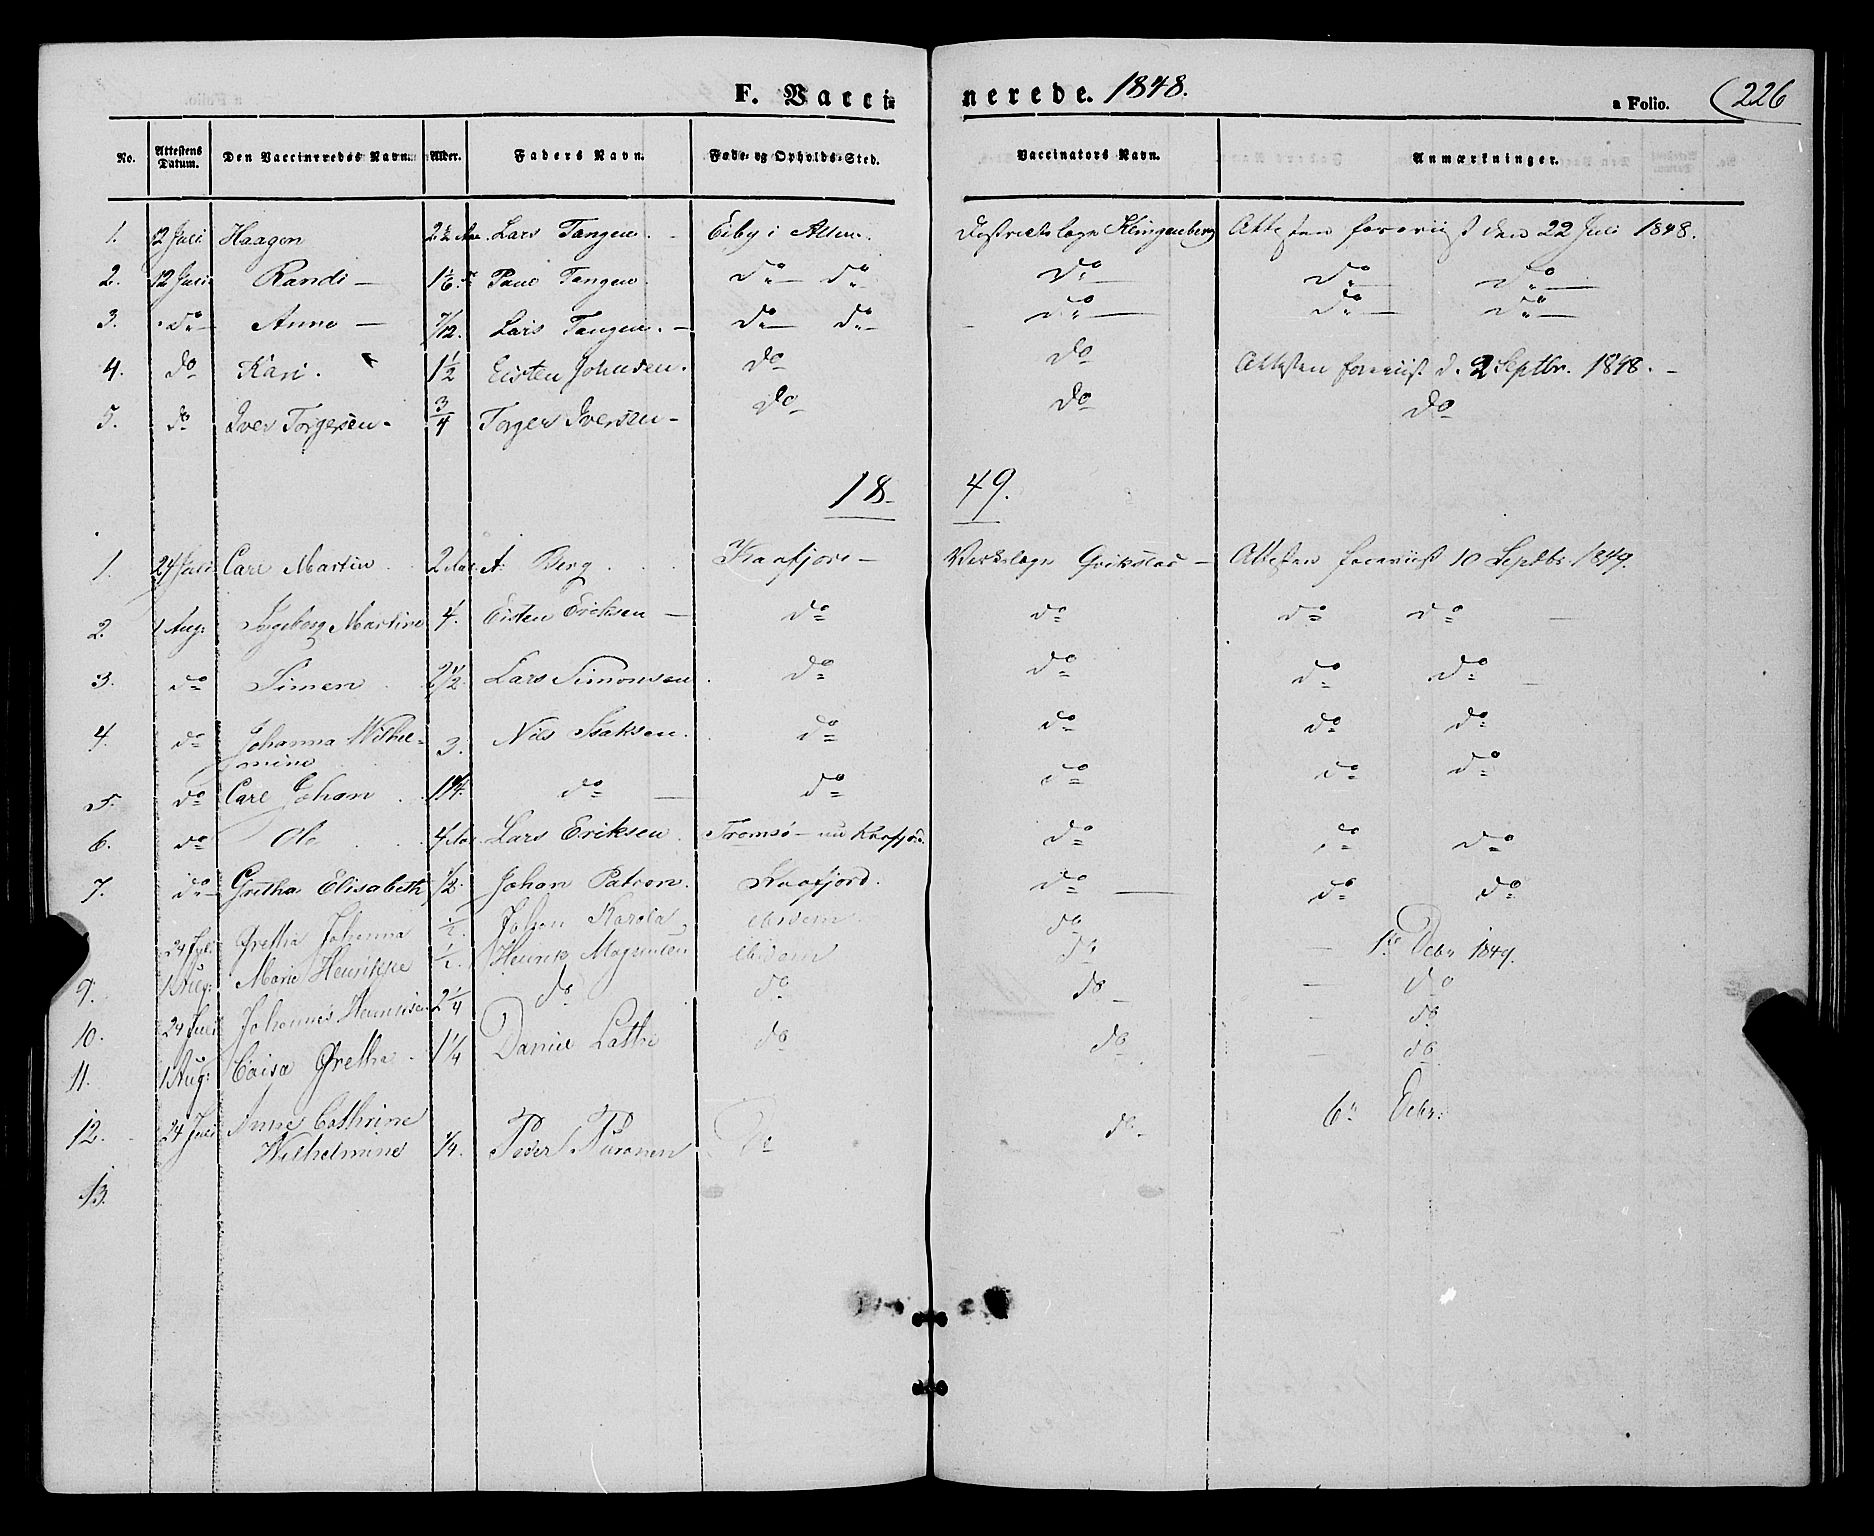 F. Vaccinerede. 1848. a Folio. (226
No. Attestens Datum. Den Vaccineredes Navn. Alder. Faders Navn. Føde- og Opholds-Sted. Vaccinators Navn. Anmærkninger.
1. 12 Juli Haagen 2½ Aar. Lars Tangen. Eiby i Alten. Districtslæge Klingenberg Attesten foreviist den 22 Juli 1848.
2. 12 Juli Randi — 1⅙ Paul Tangen. do do do do do
3. do Anne — 7/12. Lars Tangen. — do do do do do
4. do Kari. 1½ Eisten Johnsen. do do Attesten foreviist d. 2 Septbr. 1848. —
5. do Iver Torgersen - ¾ Torger Iversen - do do do
1849.
1. 24 Juli Carl Martin 2 Aar. A. Berg Kaafjord — Værkslæge — Attesten foreviist 10 Septbr. 1849.
2. 1 Aug: Ingeborg Martine 4. Eisten Eriksen — do do do do
3. do Simen 2½ Lars Simonsen do do do do
4. do Johanna Wilhel-
mine 3. Nils Isaksen. do do do do
5. do Carl Johan 1¼. do — do do do do
6. do Ole 4 Aar Lars Eriksen. Tromsø — nu Kaafjord. do do do
7. do Gretha Elisabeth ½. Johan Patron. Kaafjord. do — do do
24 Juli Gretha Johanna ½. Johan Karola ibidem do
1 Aug: Marie Henrikke ½. Henrik Magnusen ibidem do — 1ste Debr 1849.
9. 24 Juli Johannes Henriksen 2¼ do do do — do
10. 1 Aug: Caisa Gretha. 1¼ Daniel Lathi do do do
11. do
12. 24 Juli Anne Cathrine
Wilhelmine ¼. Peder Puranen do do 6te Debr:
13.